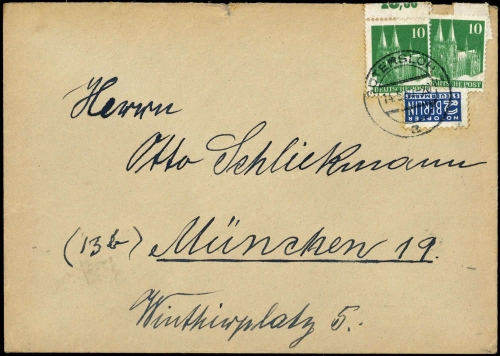 10
10
DEUTSCHE POST
DEUTSCHE POST
GÜTERSLOH
a
NOTOPFER
2 BERLIN
STEUERMARKE
Herrn
Otto Schliekmann
(13b) München 19.
Winthirplatz 5.